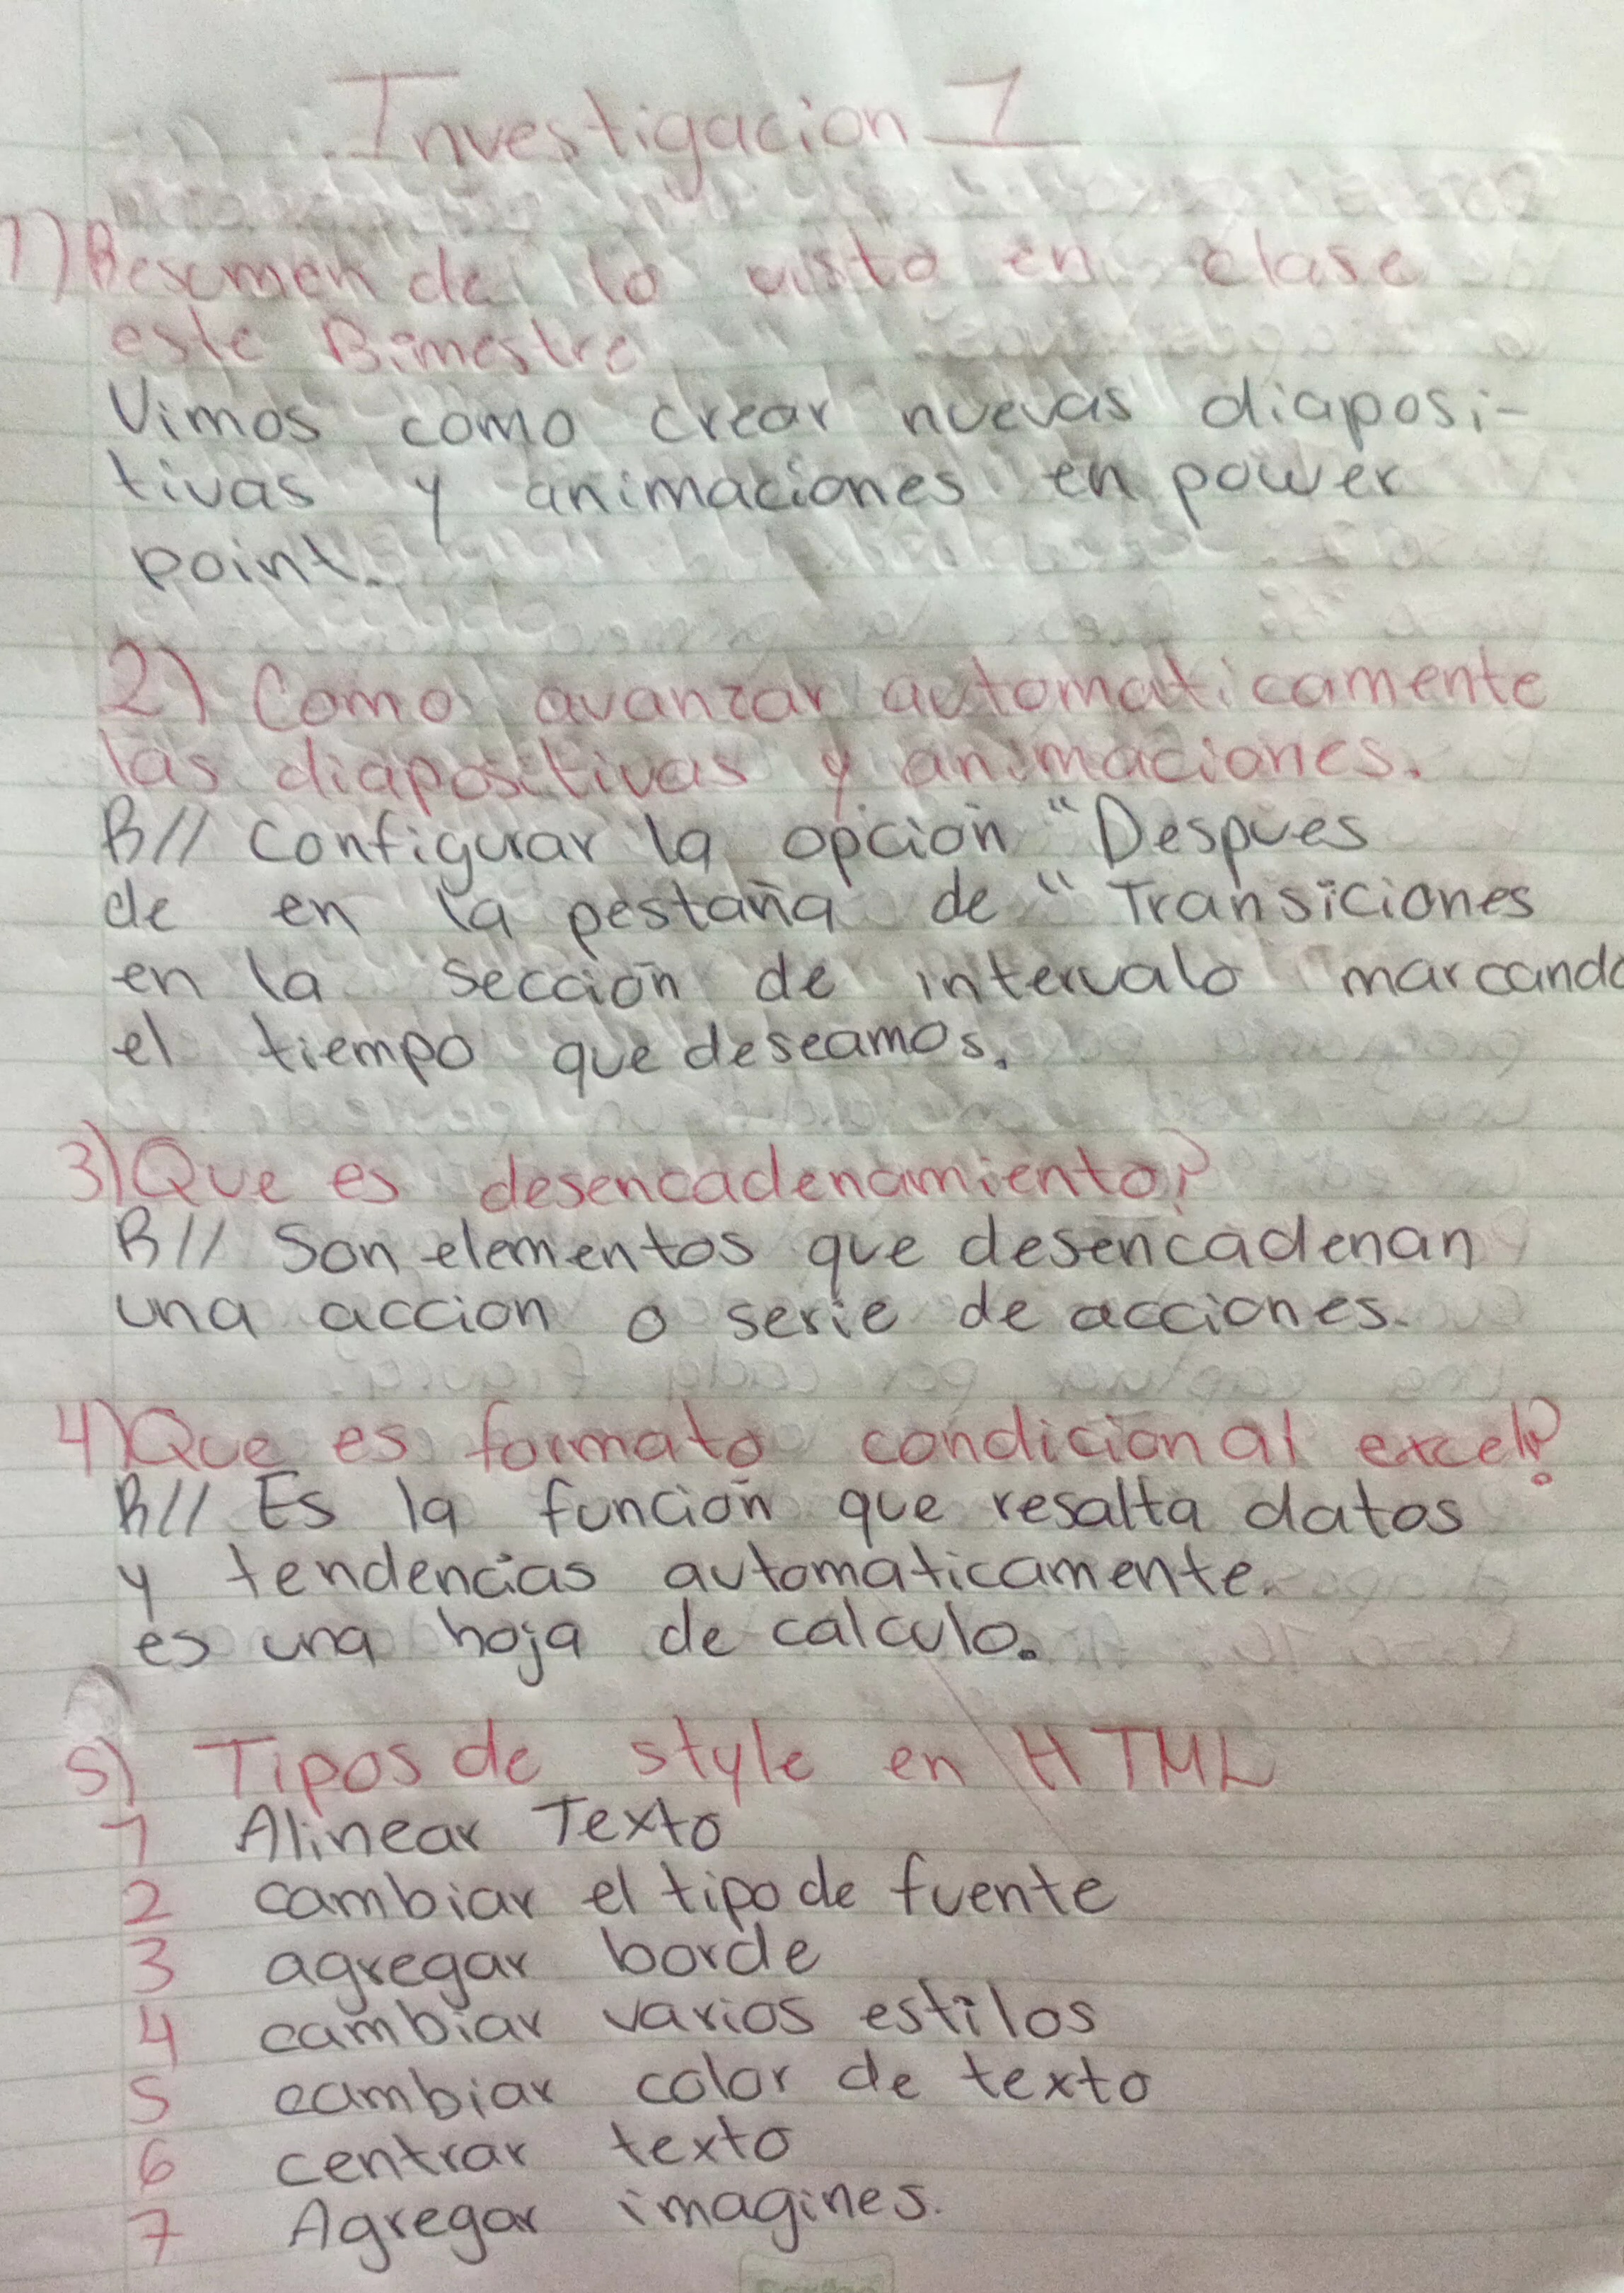 Investigacion 1
1) Resumen de lo visto en clase
este Bimestre
Vimos como crear nuevas diaposi-
tivas y animaciones en power
point.
2) Como avanzar automaticamente
las diapositivas y animaciones.
R// Configurar la opción "Despues
de en la pestaña de "Transiciones
en la sección de intervalo marcando
el tiempo que deseamos.
3) Que es desencadenamiento?
R// Son elementos que desencadenan
una accion o serie de acciones.
4) Que es formato condicional excel?
R// Es la función que resalta datos
y tendencias automaticamente.
es una hoja de calculo.
5) Tipos de style en HTML
1 Alinear Texto
2 cambiar el tipo de fuente
3 agregar borde
4 cambiar varios estilos
5 cambiar color de texto
6 centrar texto
7 Agregar imagines.